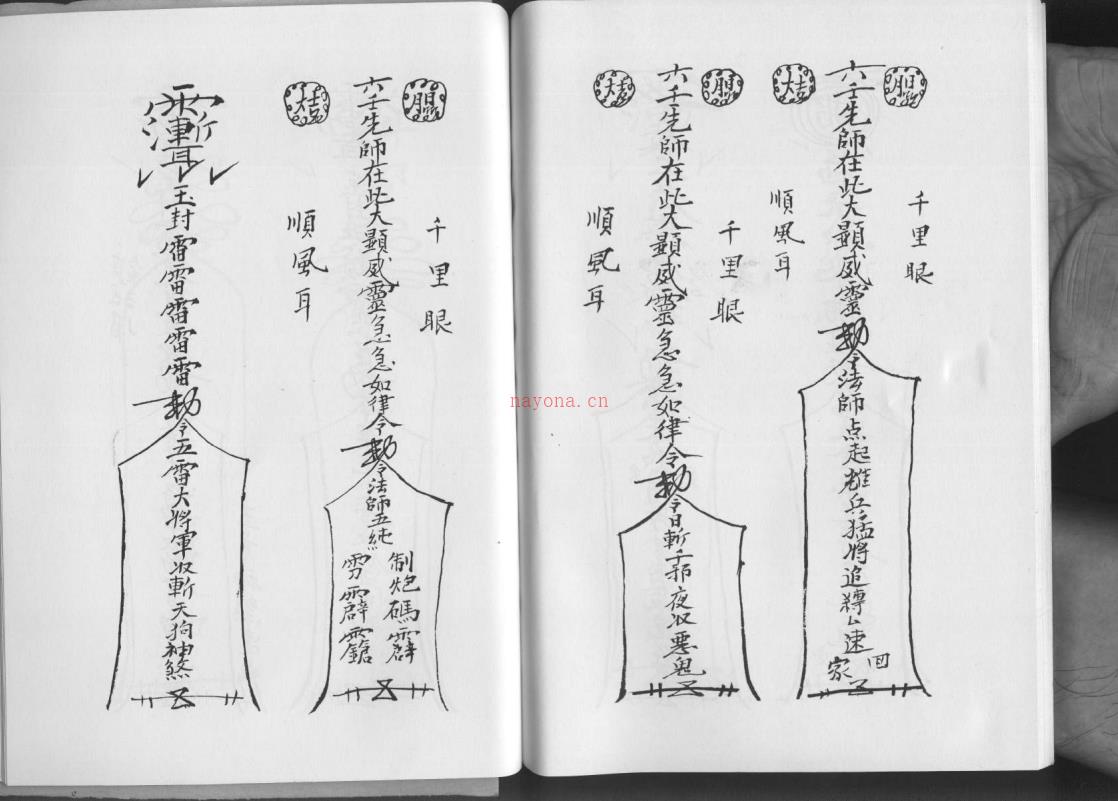 千里眼
六壬先師在此大顯威靈勅令法師点起雄兵猛将追轉△速回家
順風耳
大吉
千里眼
六壬先師在此大顯威靈急急如律令勅令日斬千邪夜收惡鬼
順風耳
大吉
千里眼
六壬先師在此大顯威靈急急如律令勅令法師五
制炮碼霹
雳霹
順風耳
大吉
玉封雷雷雷雷雷勅令五雷大將軍收斬天狗神煞
nayona.cn